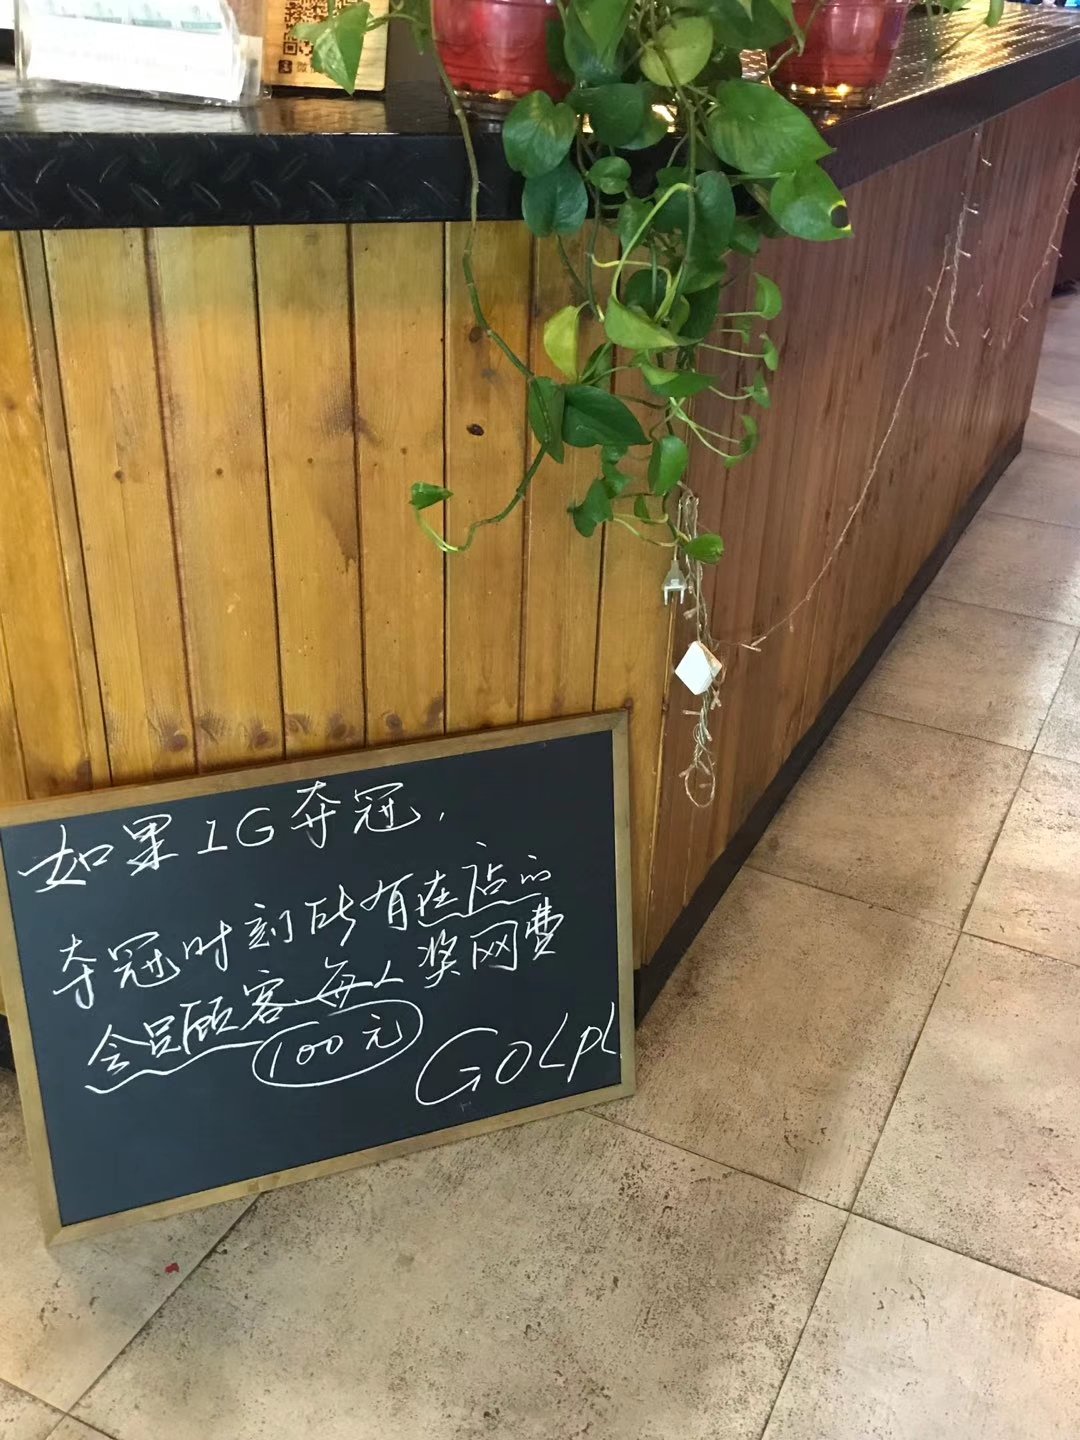 如果IG夺冠，
夺冠时刻所有在店的
会员顾客每人奖网费
100元
GOLPL